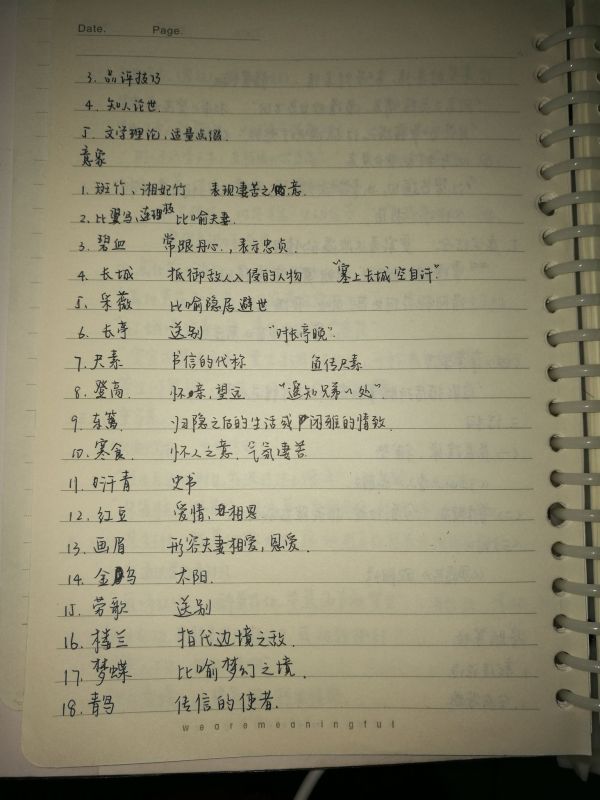 Date. Page.
3. 品评技巧
4. 知人论世.
5. 文学理论, 适量点缀.
意象
1. 斑竹、湘妃竹 表现凄苦之意.
2. 比翼鸟、连理枝 比喻夫妻.
3. 碧血 常跟丹心, 表示忠贞.
4. 长城 抵御敌人入侵的人物 "塞上长城空自许".
5. 采薇 比喻隐居避世
6. 长亭 送别 "对长亭晚".
7. 尺素 书信的代称 鱼传尺素
8. 登高. 怀亲, 望远 "遥知兄弟〃处"
9. 东篱. 归隐之后的生活或闲雅的情致.
10. 寒食. 怀人之意. 气氛凄苦
11. 汗青 史书
12. 红豆 爱情, 相思
13. 画眉 形容夫妻相爱, 恩爱.
14. 金乌 太阳.
15. 劳歌 送别
16. 楼兰 指代边境之敌.
17. 梦蝶 比喻梦幻之境.
18. 青鸟 传信的使者.
wearemeaningful